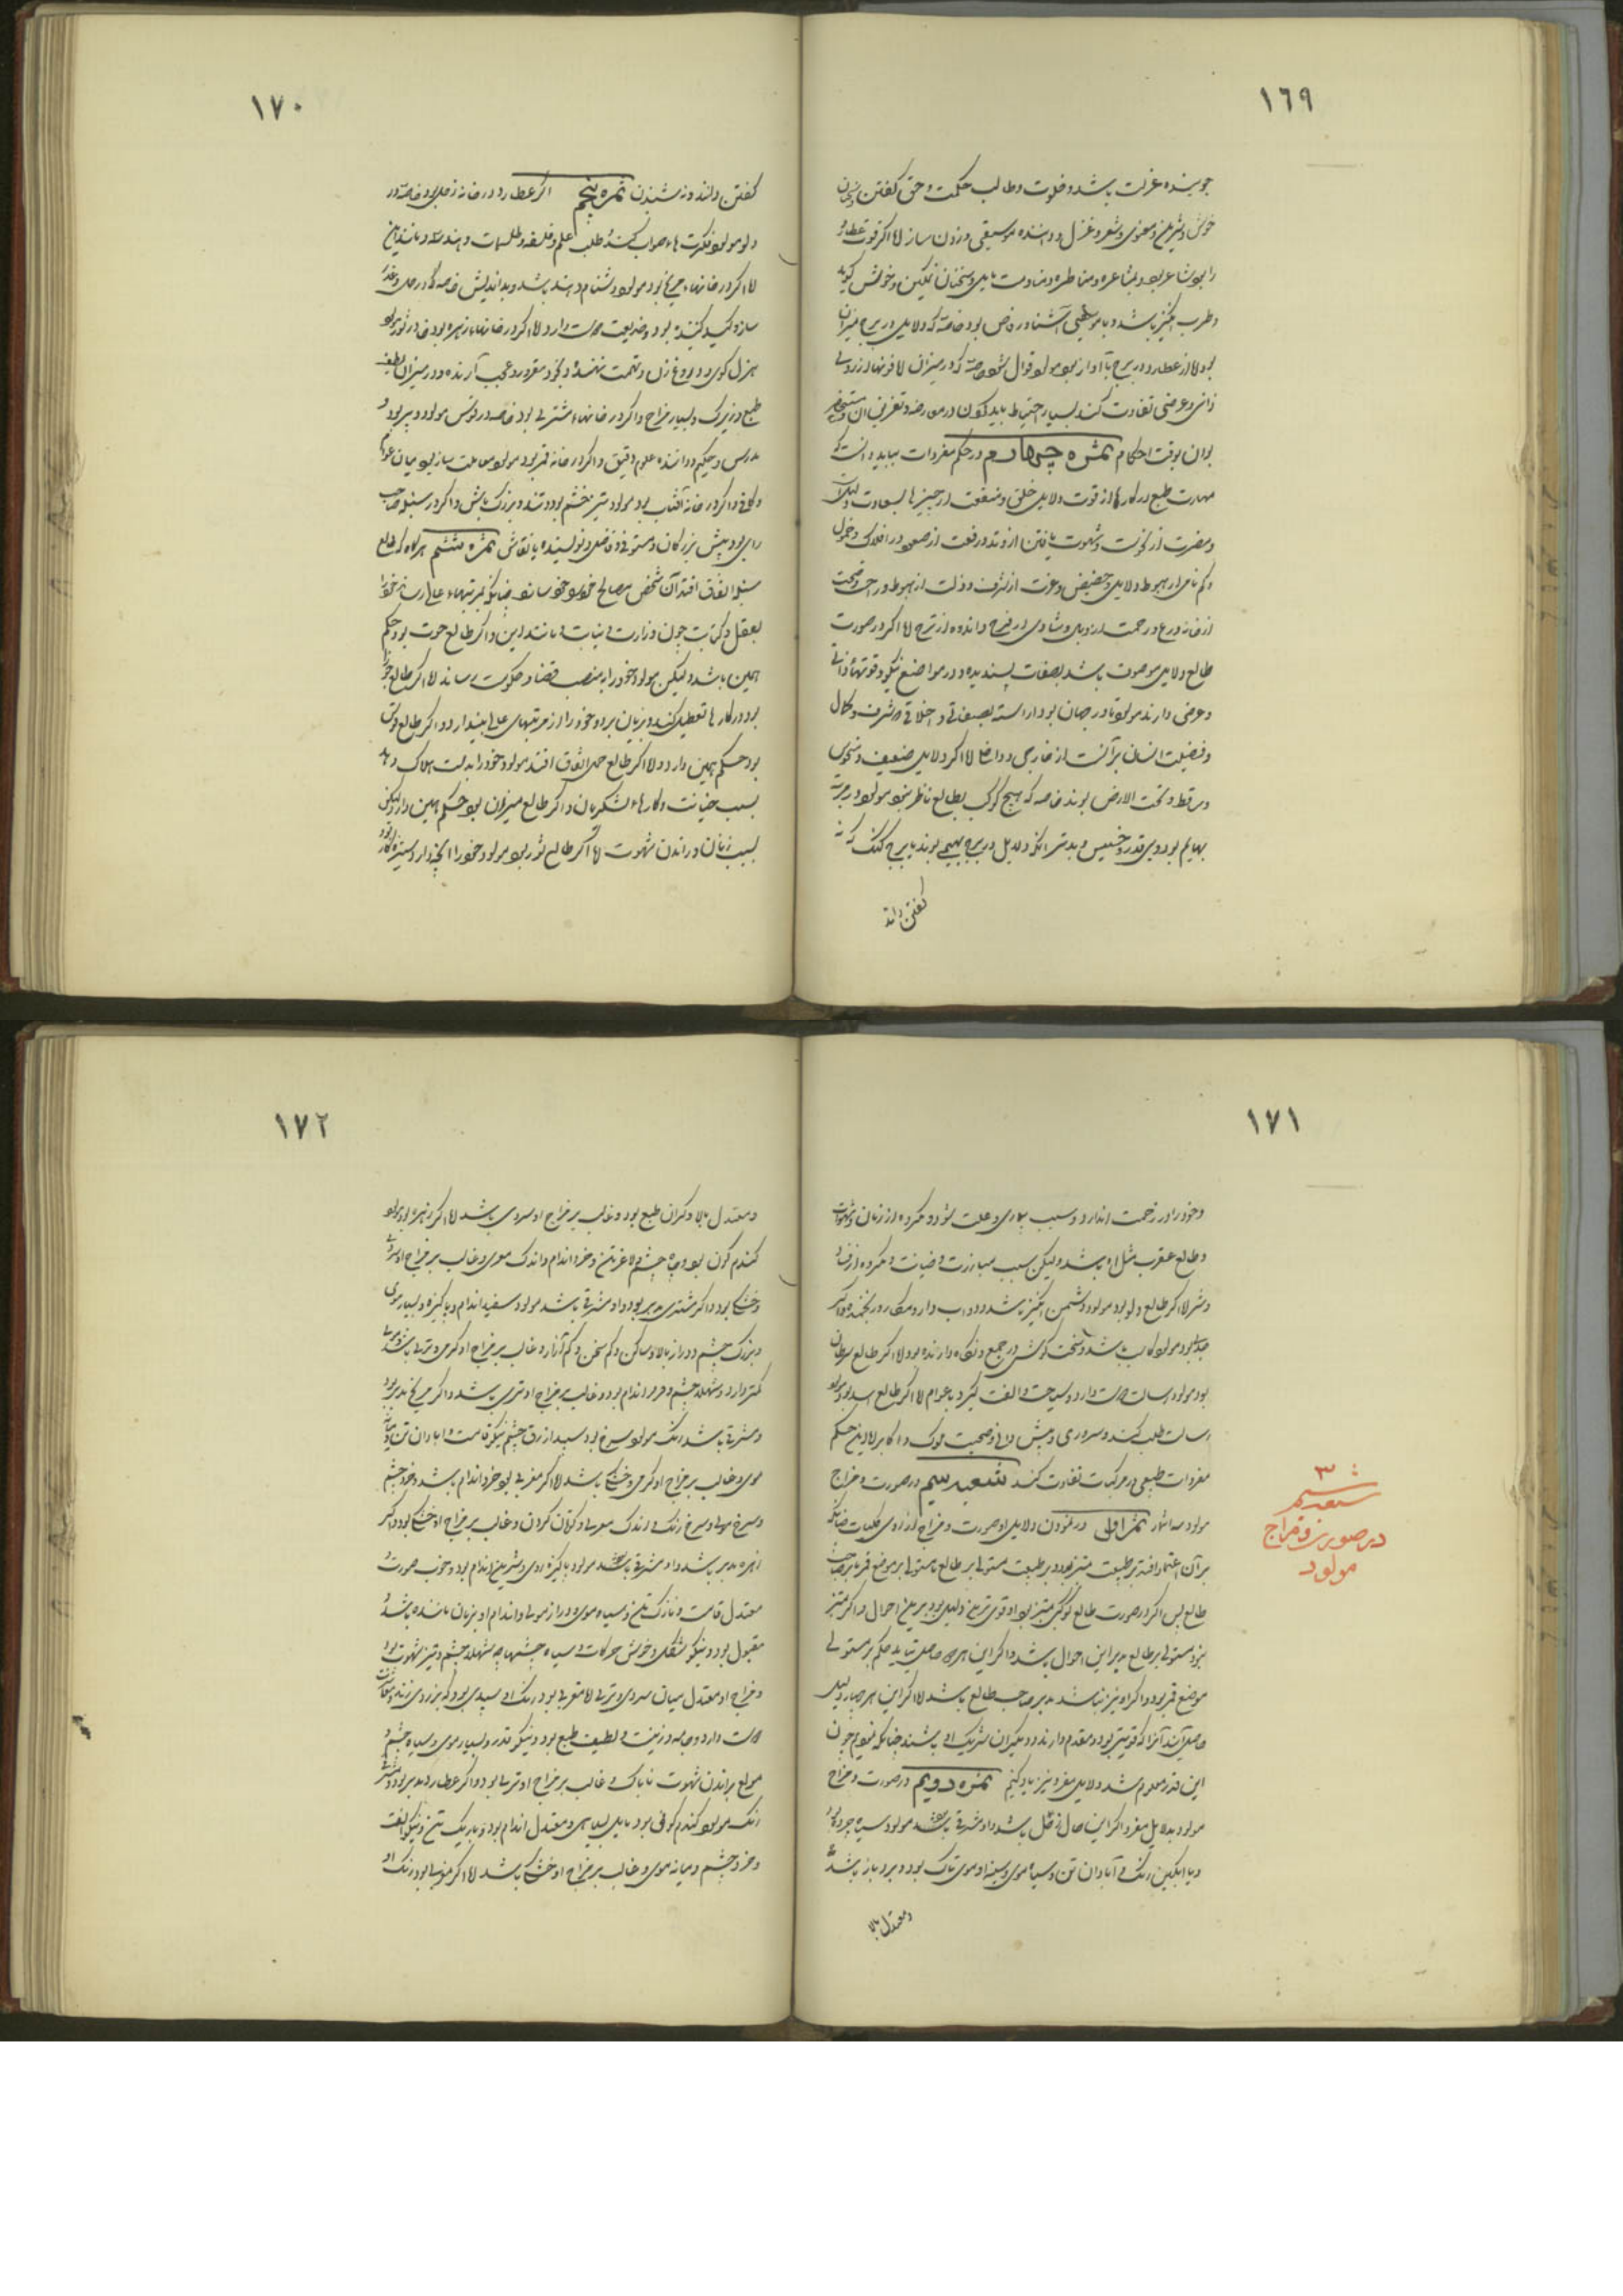 ١٦٩
جوینده عزلت باشد و خلوت و طالب حکمت و حق گفتن و سخنان
خوش و شیرین و معنوی و شعر و غزل و داننده موسیقی و زدن ساز لا اگر قوت عطارد
را بود شاعر بود و بمشاعره و مناظره و منادمت مایل و سخنان نمکین و خوش گوید
و طرب انگیز باشد و با موسیقی آشنا و رقاص بود خاصه که دلایل در برج میزان
بود لا از عطارد در برج با آواز بود مولود قوال شود خاصه که در میزان لا قوتها از روی
ذاتی و عرضی تفاوت کند بسیار احتیاط باید کردن در معرفه و تعریف آن
بدان بوقت احکام ثمره چهارم در حکم مفردات بباید دانست که
مهارت طبع در کارها از قوت دلایل خلق و منفعت از چیزها بسعادت دلیل
و مضرت از نحوست و شهوت یافتن از وتد و رفعت از صعود در افلاک و خمول
و کم نامی از هبوط دلایل و حضیض و عزت از شرف و ذلت از هبوط و راحت
از خانه و رنج و زحمت از وبال و شادی از فرح و اندوه از ترح لا اگر در صورت
طالع دلایل موصوف باشد بصفات پسندیده و در مواضع نیکو و قوتهاء ذاتی
و عرضی دارند مولود نادر جهان بود آراسته بصفاتی و اخلاقی که شرف و کمال
و فضیلت انسان بر آنست از خارجی و داخلی لا اگر دلایل ضعیف و منحوس
و ساقط و تحت الارض بوند خاصه که هیچ کوکب بطالع ناظر نبود مولود در مرتبه
بهایم بود و بی قدر و خسیس و بدتر آنکه دلایل در برج بهیمی بوند یا برج گنگ که نه
گفتن داند
١٧٠
گفتن داند و نه شنیدن ثمره پنجم اگر عطارد در خانه زحل بود خاصه در
دلو مولود فکرت هاء صواب کند و طلب علم و فلسفه و طلسمات و هندسه و مانند این
لا اگر در خانهاء مریخ بود مولود دشنام دهنده باشد و بد اندیش خاصه که در حمل و غدر
ساز و کید کننده بود و خدیعت دوست دارد لا اگر در خانهاء زهره بود خاصه در ثور مولود
هزل گوی و دروغ زن و تهمت نهنده و بخود مغرور و عجب آرنده و در میزان لطیف
طبع و زیرک و بسیار مزاح و اگر در خانهاء مشتری بود خاصه در قوس مولود دبیر بود و
مدرس و حکیم و داننده علوم دقیق و اگر در خانه قمر بود مولود معاملت ساز بود میان عوام
و اگر در خانه آفتاب بود مولود تیز خشم بود و تند و بزرگ منش و اگر در سنبله صاحب
رای بود پیش بزرگان و مستوفی و فاضل و نویسنده یا نقاش ثمره ششم هرگاه که طالع
سنبله اتفاق افتد آن شخص مصالح خود بخود سازد چنانکه بمرتبهاء عالی رساند خود را
بعقل و کتابت چون وزارت و نیابت و مانند این و اگر طالع حوت بود حکم
همین باشد ولیکن مولود خود را بمنصب قضا و حکومت رساند لا اگر طالع جوزا
بود در کارها تعطیل کند و بزیان برد و خود را از مرتبهاء عالی بیندازد و اگر طالع قوس
بود حکم همین دارد و لا اگر طالع حمل اتفاق افتد مولود خود را بدست هلاک دهد
بسبب خیانت و کارهاء لشکریان و اگر طالع میزان بود حکم همین دارد لیکن
بسبب زنان و راندن شهوت لا اگر طالع ثور بود مولود خود را
١٧١
و خود را در زحمت اندازد و سبب بیماری و علت شود و مکروه از زنان و شهوت
و طالع عقرب مثل او باشد ولیکن سبب مبارزت و خیانت و مکروه از فساد
و شر لا اگر طالع دلو بود مولود دشمن انگیز باشد و دواب دارد و مکار و رنجنده و اگر
جدی بود مولود کاتب باشد و سخت کوش در جمع و نگاه دارنده بود لا اگر طالع سرطان
بود مولود رسالت دوست دارد و سیاحت و الفت گیرد با عوام لا اگر طالع اسد بود مولود
رسالت طلب کند و سروری و پیش روی و صحبت ملوک و اکابر لا و این حکم
مفردات طبیعی در مرکبات تفاوت کند شعبه سیم در صورت و مزاج
مولود سه اثمار ثمر اول در نمودن دلایل و صورت و مزاج از روی کلیات چنانکه
بر آن اعتماد افتد بر طبیعت مبتز بود و بر طبیعت مستولی بر طالع یا مستولی بر موضع قمر یا بر صاحب
طالع پس اگر در صورت طالع کوکبی مبتز بود او قوی ترین دلیل بود بر این احوال و اگر مبتز
نبود مستولی بر طالع مدبر این احوال باشد و اگر این هر دو حاصل نیاید حکم بر مستولی
موضع قمر بود و اگر او نیز نباشد مدبر صاحب طالع باشد لا اگر این هر چهار دلیل
حاصل آید آنرا که قویتر بود مقدم دارند و دیگران شریک او باشند چنانکه نمودیم چون
این قدر معلوم شد دلایل مفرد نیز یاد کنیم ثمره دویم در صورت و مزاج
مولود بدلایل مفرد اگر این حال زحل باشد و او مشرقی باشد مولود سیاه چرده بود
و یا انگبین رنگ و آبادان تن و سیاه موی و سینه او موی ناک بود و بردبار باشد
و معتدل بالا
۳
شعبه سیم
در صورت و مزاج
مولود
١٧٢
و معتدل بالا و گران طبع بود و غالب بر مزاج او سردی باشد لا اگر زهره بود مولود
گندم گون بود و سیاه چشم و لاغر تن و خرد اندام و اندک موی و غالب بر مزاج او سردی
و خشکی بود و اگر مشتری مدبر بود و او مشرقی باشد مولود سفید اندام و پاکیزه و بسیار موی
و بزرگ چشم و دراز بالا و ساکن و کم سخن و کم آزار و غالب بر مزاج او گرمی و تری باشد
کمتر دارد و شهلا چشم و خرد اندام بود و غالب بر مزاج او تری باشد و اگر مریخ مدبر بود
و مشرقی باشد رنگ مولود سرخ بود سپید ازرق چشم نیکو قامت و آبادان تن و میانه
موی و غالب بر مزاج او گرمی و خشکی باشد لا اگر مغربی بود خرد اندام باشد و خرد چشم
و سرخ موی و سرخ رنگ و اندک موی و کوتاه گردن و غالب بر مزاج او خشکی بود و اگر
زهره مدبر باشد و او مشرقی باشد مولود پاکیزه روی و شیرین اندام بود و خوب صورت و
معتدل قامت و نازک تن و سیاه موی و دراز موی و اندام او بزنان ماننده باشد
مقبول بود و نیکو شکل و خوش حرکات و سیاه چشم یا شهلا چشم و تیز شهوت بود
و مزاج او معتدل میان سردی و تری لا مغربی بود رنگ او سپیدی بود که بزردی زند و معاشرت
دوست دارد و جامه و زینت و لطیف طبع بود و نیکو قد و بسیار موی و سیاه چشم و
مولع براندن شهوت ناپاک و غالب بر مزاج او تری بود و اگر عطارد مدبر بود و مشرقی
رنگ مولود گندم گون بود مایل بسیاهی و معتدل اندام بود و باریک تن و نیکو الفت
و خرد چشم و میانه موی و غالب بر مزاج او خشکی باشد لا اگر مغربی بود رنگ او